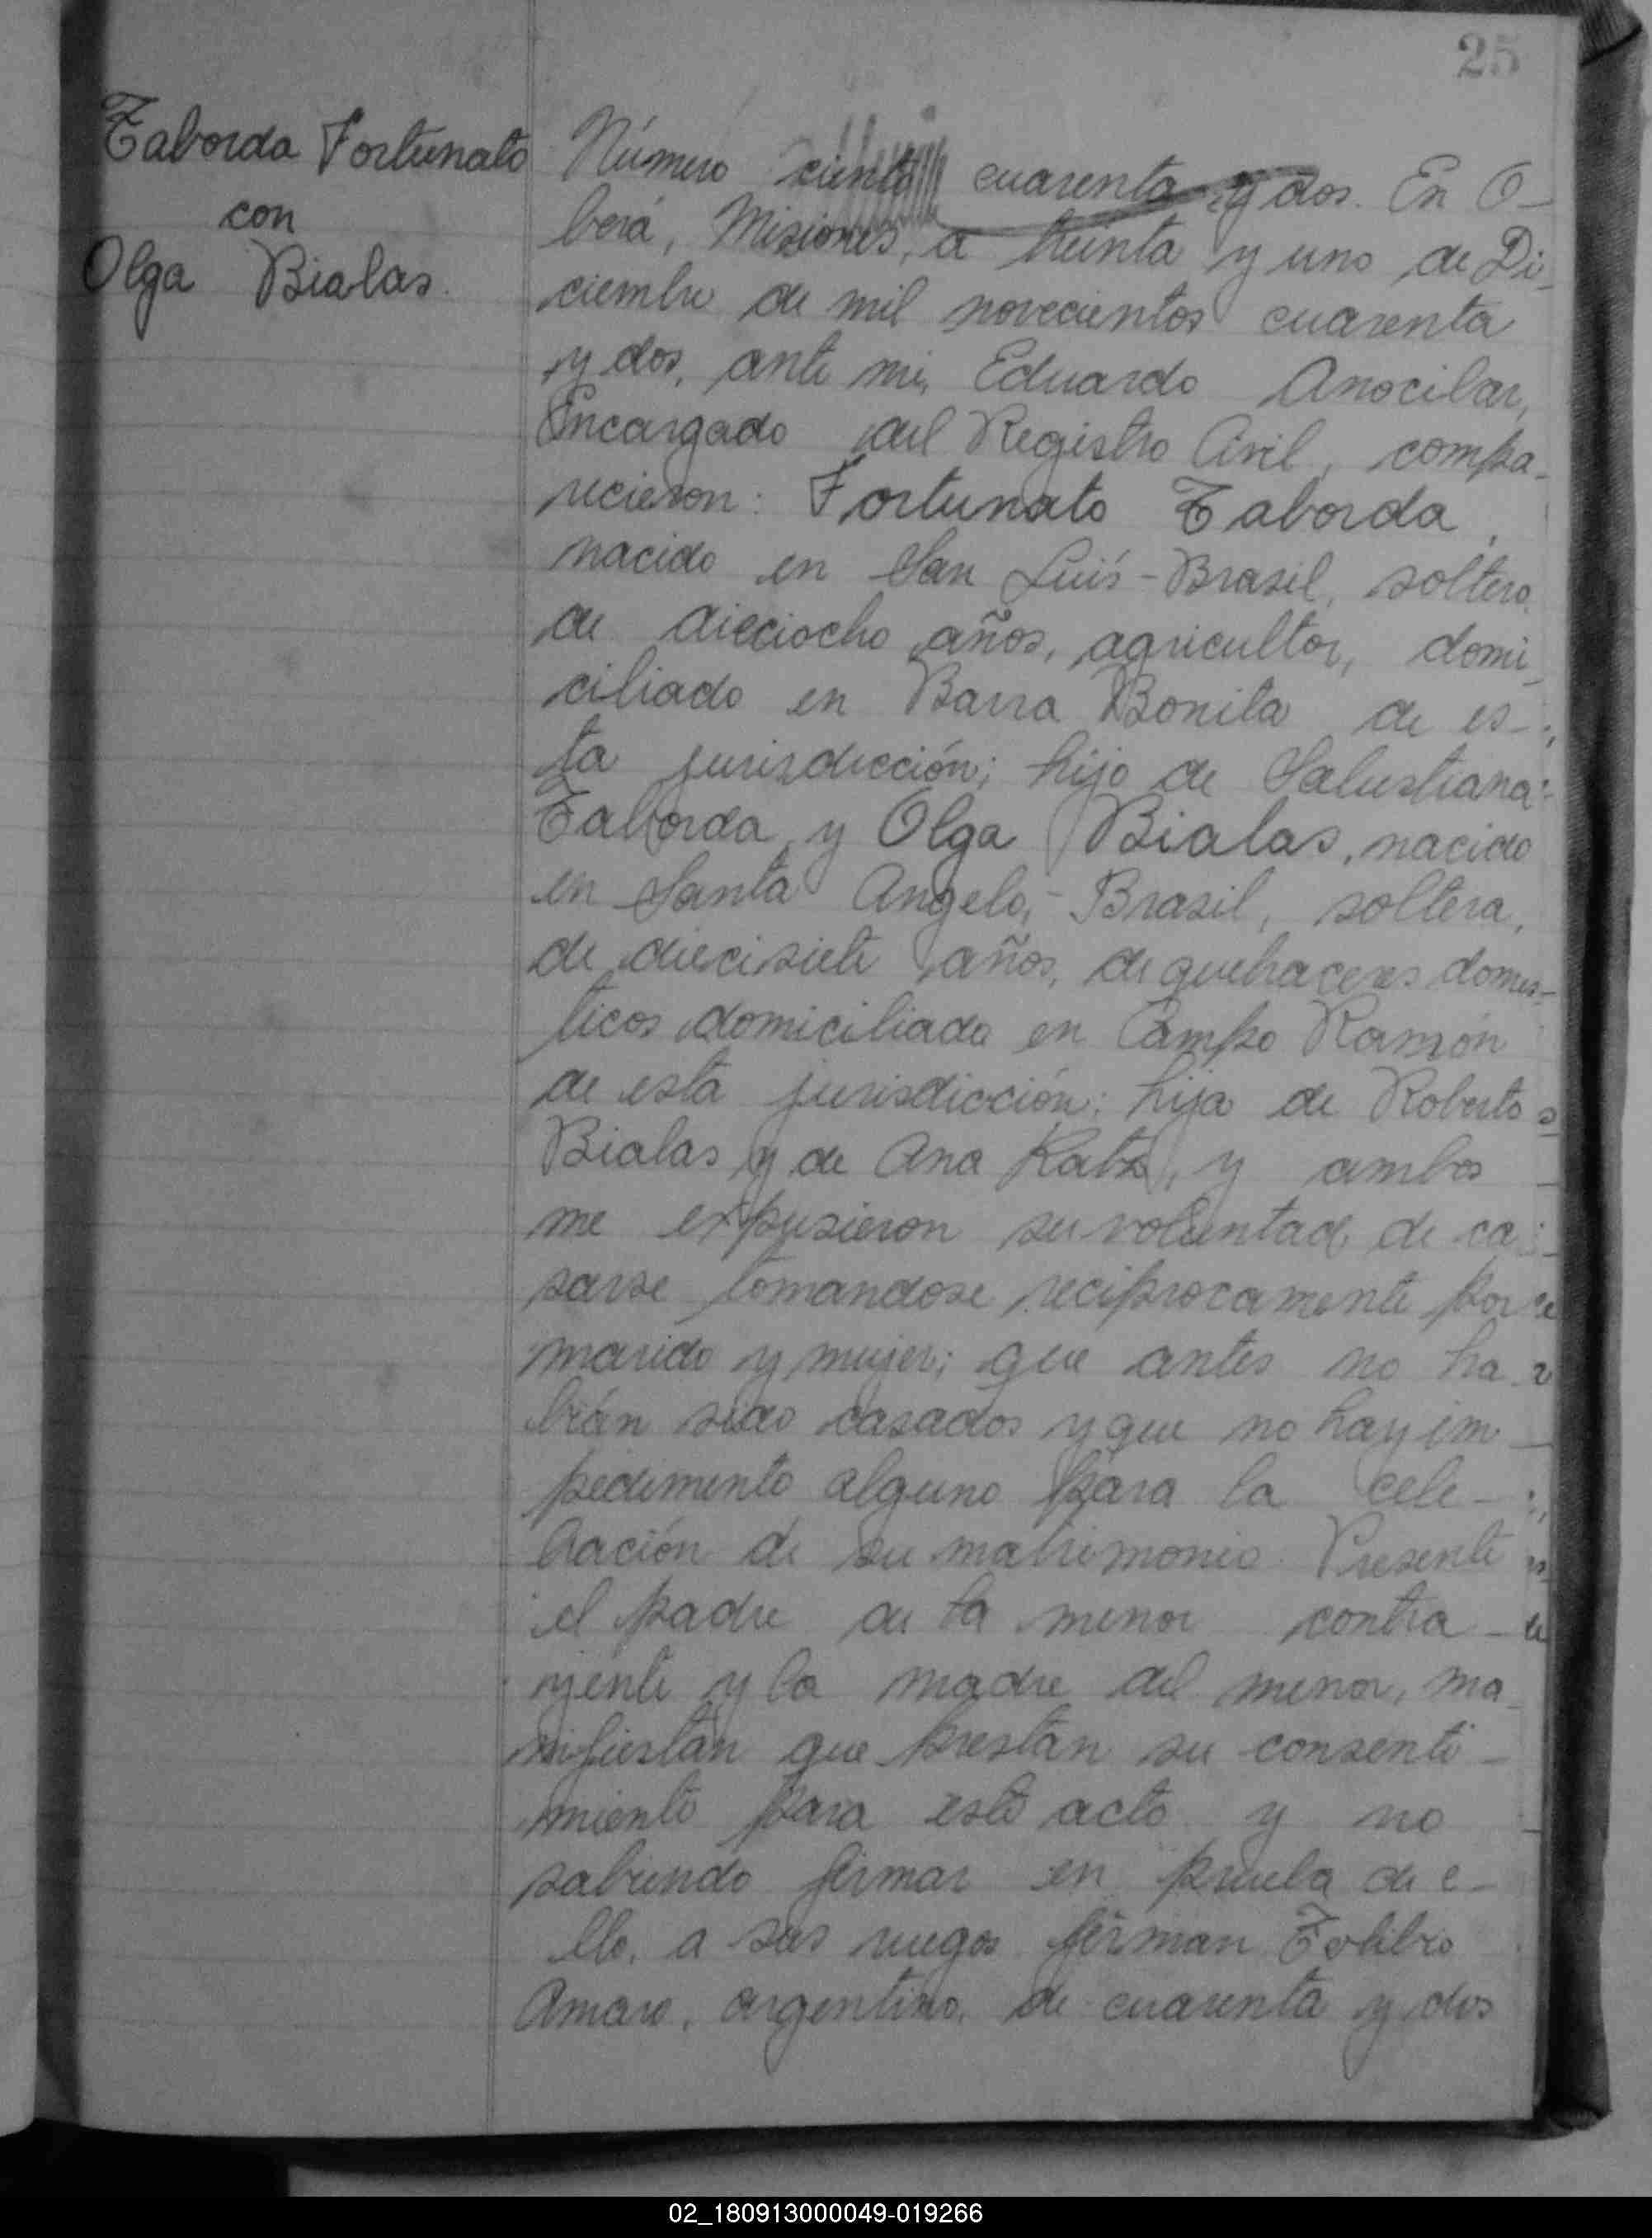 25
Taborda Fortunato
con
Olga Bialas.
Número ciento cuarenta y dos. En O-
berá, Misiones, a treinta y uno de Di-
ciembre de mil novecientos cuarenta
y dos, ante mi, Eduardo Anocibar,
Encargado del Registro Civil, compa-
recieron: Fortunato Taborda,
nacido en San Luis-Brasil, soltero,
de dieciocho años, agricultor, domi-
ciliado en Barra Bonita de es-
ta jurisdicción; hijo de Salustiana
Taborda y Olga Bialas, nacido
en Santa Angelo,- Brasil, soltera,
de diecisiete años, de quehaceres domes-
ticos domiciliada en Campo Ramón
de esta jurisdicción; hija de Roberto
Bialas y de Ana Katz, y ambos
me expusieron su voluntad de ca-
sarse tomandose reciprocamente por
marido y mujer; que antes no ha-
bián sido casados y que no hay im-
pedimento alguno para la cele-
bración de su matrimonio. Presente
el padre de la menor contra-
yente y la madre del menor, ma-
nifiestan que prestan su consenti-
miento para este acto y no
sabiendo firmar en prueba de e-
llo, a sus ruegos firman
Amaro, argentino, de cuarenta y dos
02_180913000049-019266